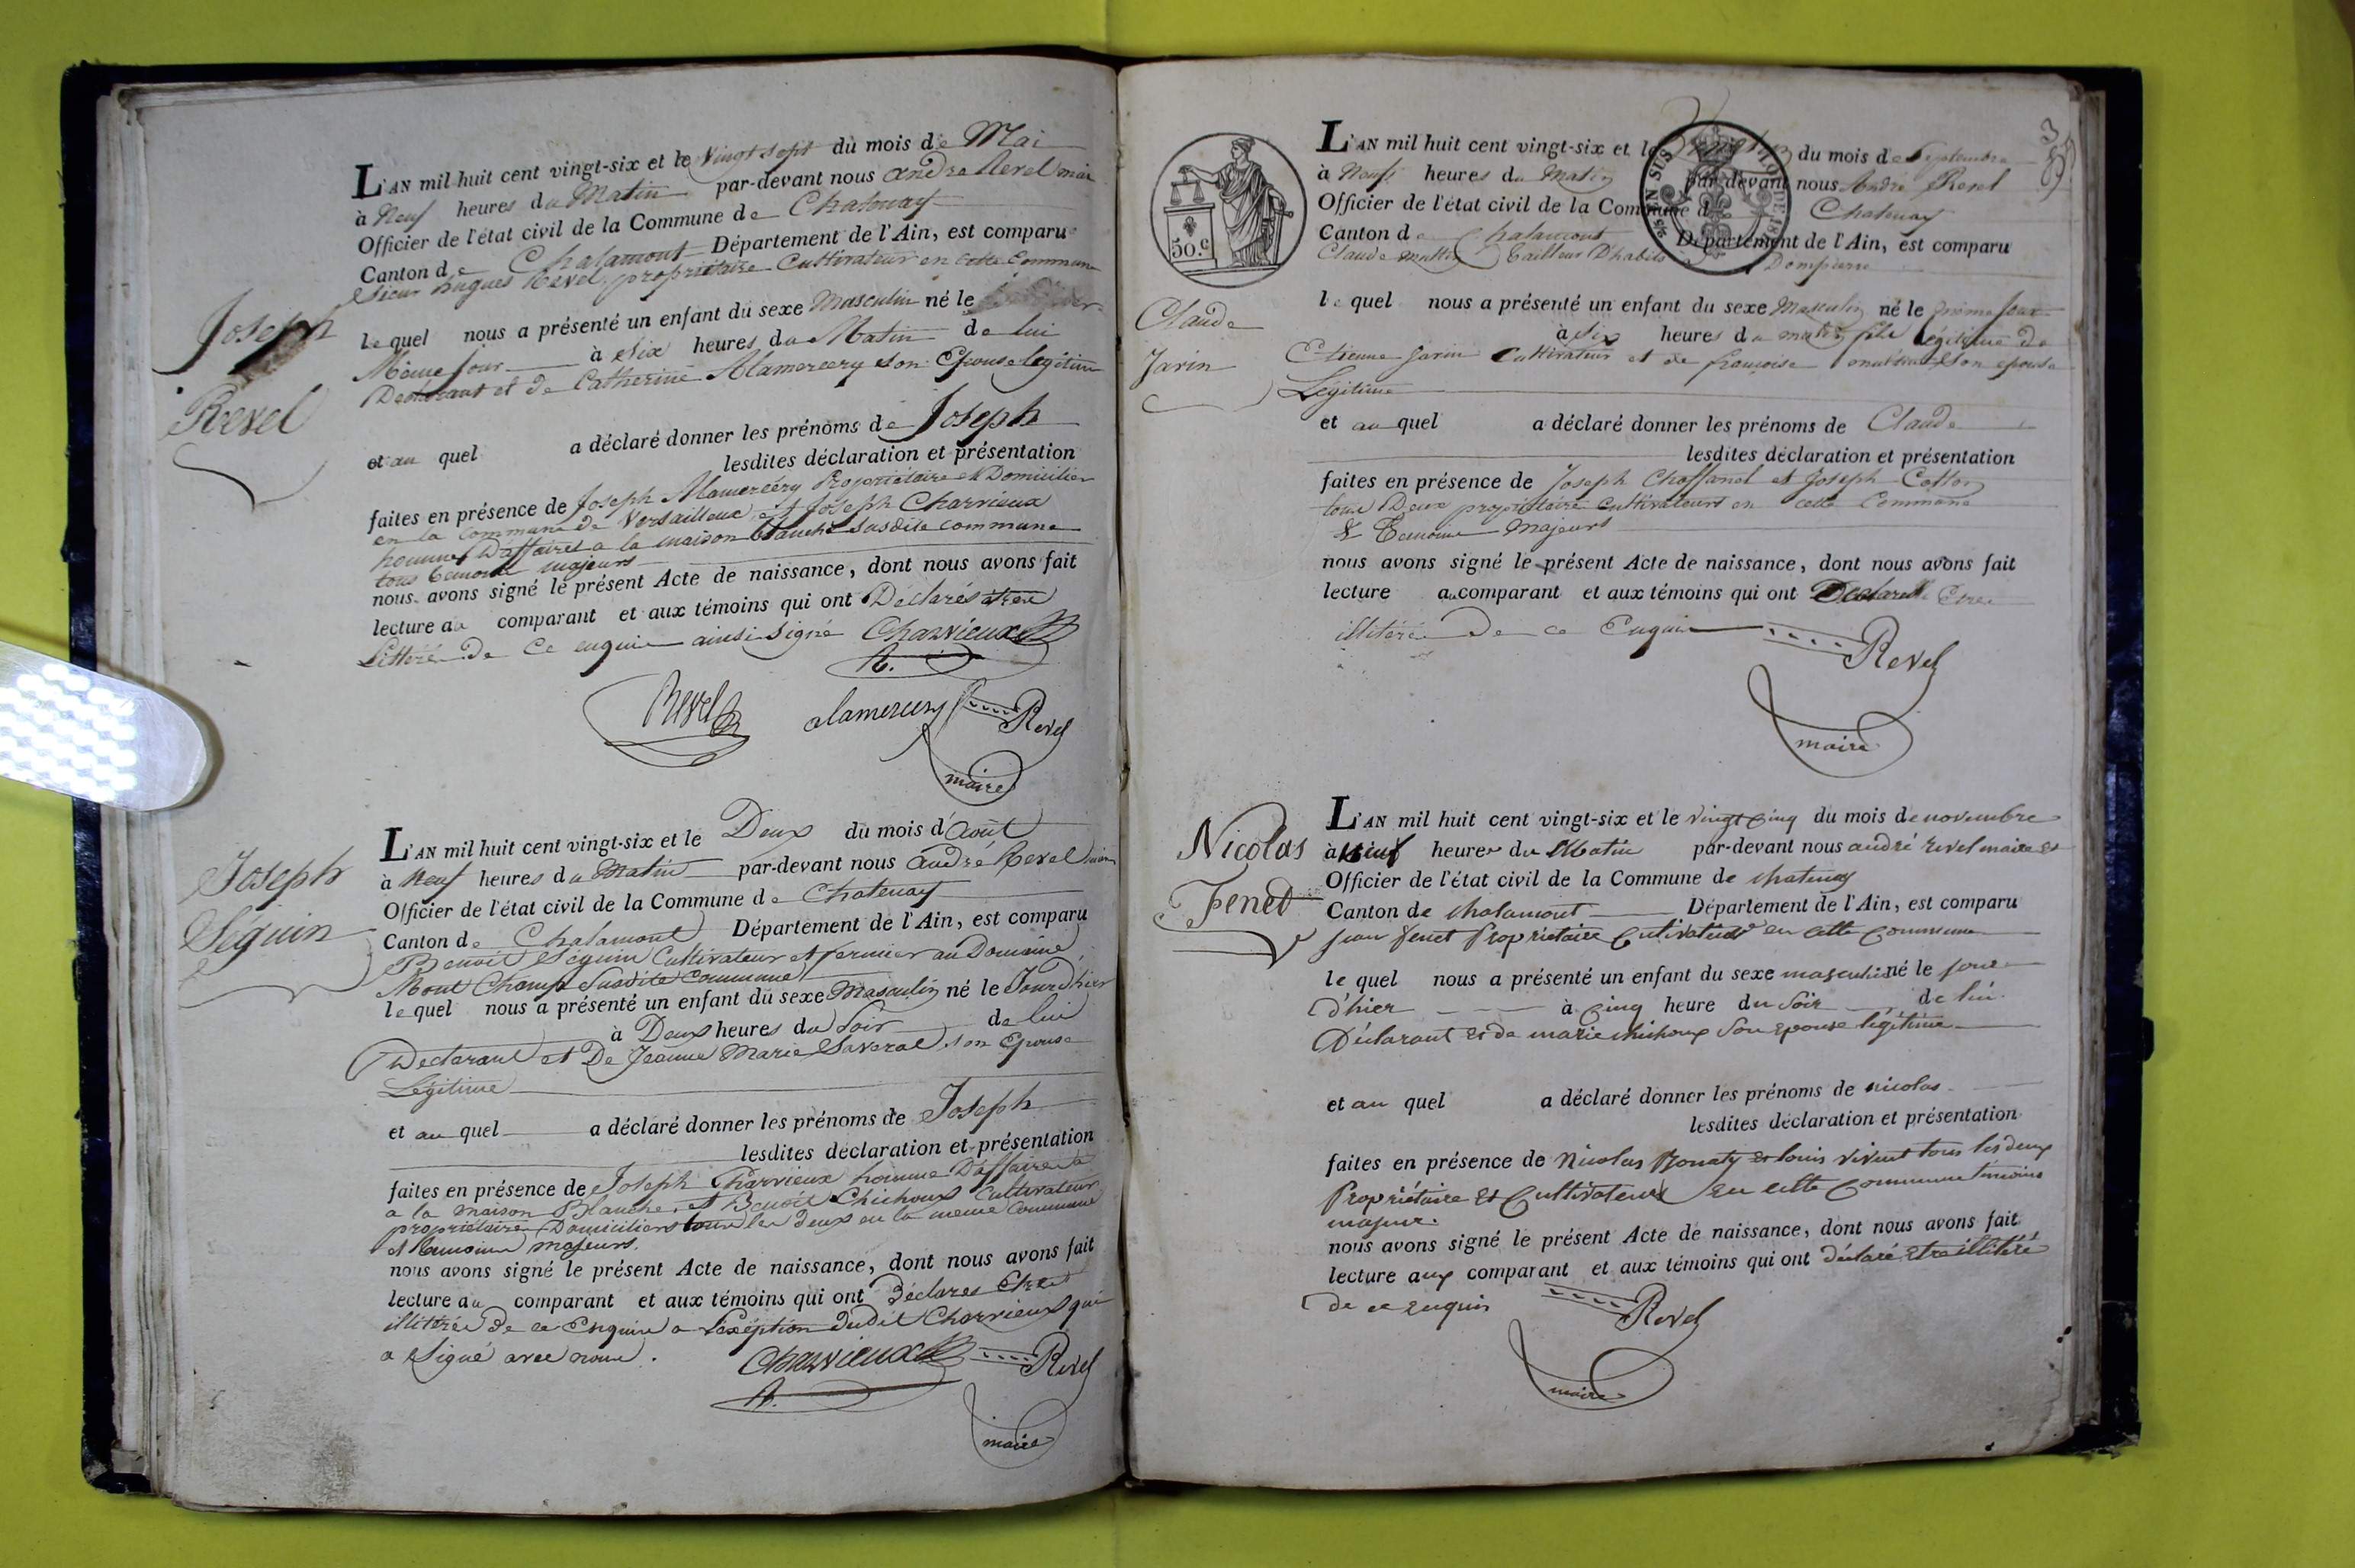 Joseph
Revel
L'AN mil huit cent vingt-six et le vingt sept du mois de Mai
à Neuf heures du Matin par-devant nous andré Revel maire
Officier de l'état civil de la Commune de Chatenay
Canton de Chalamont Département de l'Ain, est comparu
Sieur hugues Revel, propriétaire Cultivateur en cette commune
lequel nous a présenté un enfant du sexe Masculin né le
Même jour à Six heures du Matin de lui
Déclarant et de Catherine Alamercery son Epouse légitime
et au quel a déclaré donner les prénoms de Joseph
lesdites déclaration et présentation
faites en présence de Joseph Alamercery Propriétaire et Domicilier
en la commune de Versailleux et Joseph Charvieux
homme D'affaires a la maison blanche susdite commune
tous temoins majeurs
nous avons signé le présent Acte de naissance, dont nous avons fait
lecture au comparant et aux témoins qui ont Déclarés etre
Littéré de ce enquis ainsi signé Charvieux
Revel alamercery Revel
maire
Joseph
Séguin
L'AN mil huit cent vingt-six et le Deux du mois d'Août
à Neuf heures du Matin par-devant nous André Revel maire
Officier de l'état civil de la Commune de Chatenay
Canton de Chalamont Département de l'Ain, est comparu
Benoit Seguin Cultivateur et fermier au Domaine
Mont Champ Susdite Commune
lequel nous a présenté un enfant du sexe Masculin né le Jour D'hier
à Deux heures du Soir de lui
Declarant et De Jeanne Marie Saveral son Epouse
Légitime
et au quel a déclaré donner les prénoms de Joseph
lesdites déclaration et présentation
faites en présence de Joseph Charvieux homme D'affaire
a la maison Blanche, et Benoit Chichoux Cultivateur
propriétaire Domiciliers tous les deux en la meme Commune
et temoins majeurs.
nous avons signé le présent Acte de naissance, dont nous avons fait
lecture au comparant et aux témoins qui ont Déclares Etre
illitérés de ce Enquis a L'exéption dudit Charvieux qui
a Signé avec nous.
Charvieux Revel
maire
3
50.c
Claude
Jarin
L'AN mil huit cent vingt-six et le du mois de Septembre
à Neuf heures du Matin par-devant nous André Revel
Officier de l'état civil de la Commune de Chatenay
Canton de Chalamont Département de l'Ain, est comparu
Claude Tailleur D'habits Dompierre
lequel nous a présenté un enfant du sexe Masculin né le même Jour
à Six heures du matin fils Légitime de
Etienne Jarin Cultivateur et de françoise son epouse
Légitime
et au quel a déclaré donner les prénoms de Claude
lesdites déclaration et présentation
faites en présence de Joseph Chaffanel et Joseph Cotton
tous Deux propriétaire Cultivateurs en cette Commune
& Temoins Majeurs
nous avons signé le présent Acte de naissance, dont nous avons fait
lecture au comparant et aux témoins qui ont Declarés Etre
illitéré De ce Enquis Revel
maire
Nicolas
Fenet
L'AN mil huit cent vingt-six et le vingt cinq du mois de novembre
à neuf heures du Matin par-devant nous andré revel maire et
Officier de l'état civil de la Commune de chatenay
Canton de chalamont Département de l'Ain, est comparu
jean fenet Propriétaire Cultivateur en cette Commune
le quel nous a présenté un enfant du sexe masculin né le jour
d'hier à cinq heure du Soir de lui
Déclarant et de marie chichoux son epouse légitime
et au quel a déclaré donner les prénoms de nicolas
lesdites déclaration et présentation
faites en présence de Nicolas Bonaty et louis vivent tous les deux
Propriétaire et Cultivateur en cette Commune témoins
majeur.
nous avons signé le présent Acte de naissance, dont nous avons fait
lecture aux comparant et aux témoins qui ont déclaré etre illitéré
de ce enquis Revel
maire